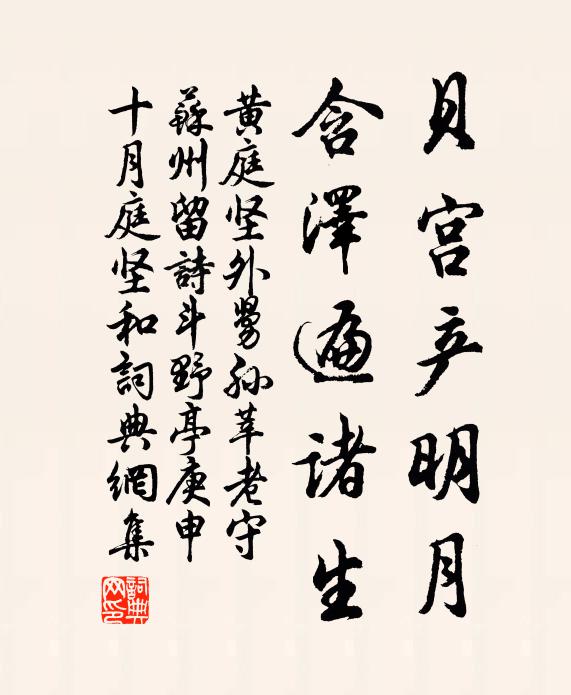 贝宫产明月
含澤遍诸生
黄庭坚外舅孙莘老守
蘇州留詩斗野亭庚申
十月庭坚和詞典網集
詞典网印